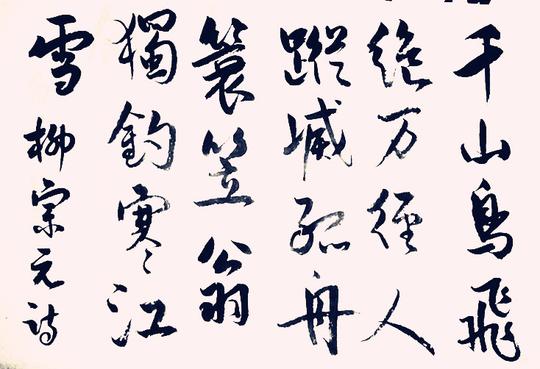 千山鳥飛
絶万徑人
蹤滅孤舟
簑笠翁
獨釣寒江
雪 柳宗元詩